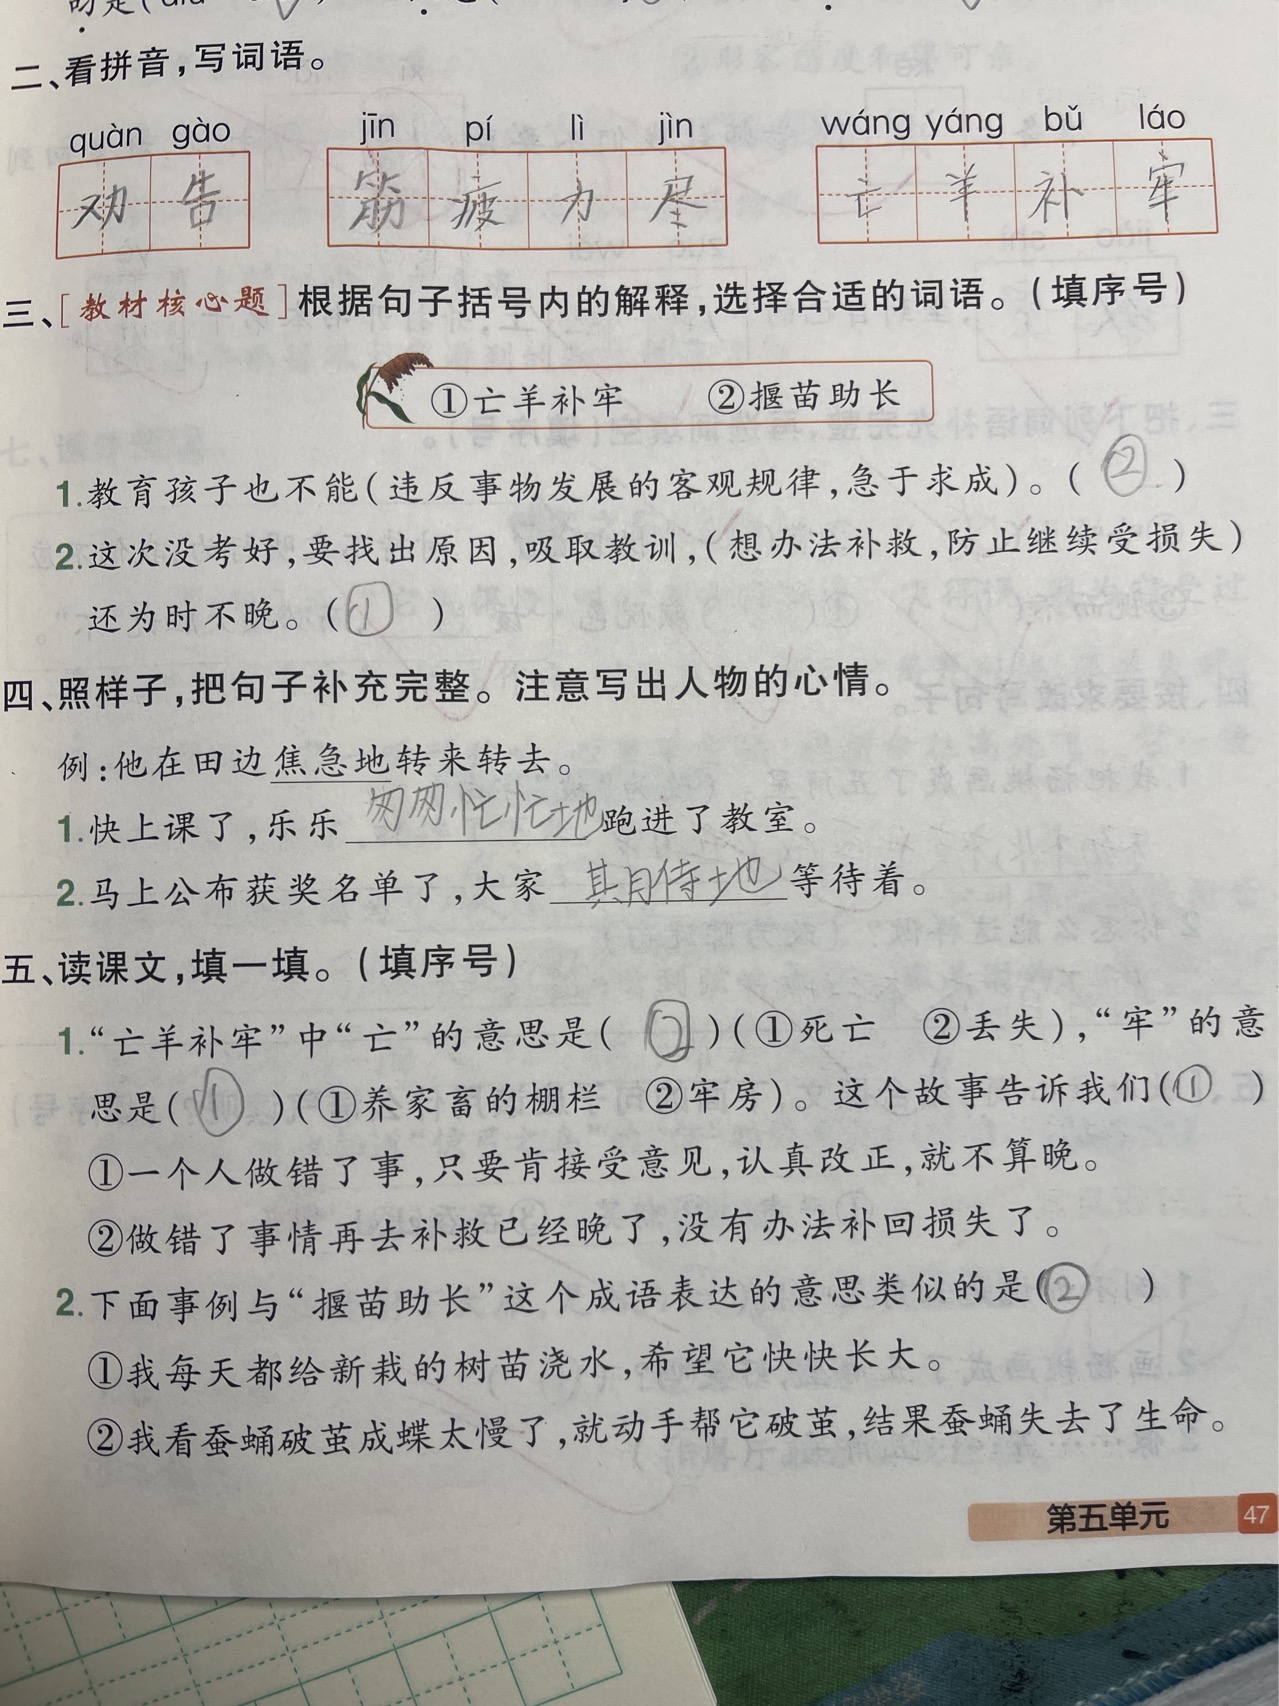 的是(
二、看拼音,写词语。
quàn gào jīn pí lì jìn wáng yáng bǔ láo
劝告 筋疲力尽 亡羊补牢
三、[教材核心题]根据句子括号内的解释,选择合适的词语。(填序号)
①亡羊补牢 ②揠苗助长
1.教育孩子也不能(违反事物发展的客观规律,急于求成)。( ② )
2.这次没考好,要找出原因,吸取教训,(想办法补救,防止继续受损失)
还为时不晚。( ① )
四、照样子,把句子补充完整。注意写出人物的心情。
例:他在田边焦急地转来转去。
1.快上课了,乐乐匆匆忙忙地跑进了教室。
2.马上公布获奖名单了,大家期待地等待着。
五、读课文,填一填。(填序号)
1.“亡羊补牢”中“亡”的意思是( ② )(①死亡 ②丢失),“牢”的意
思是( ① )(①养家畜的棚栏 ②牢房)。这个故事告诉我们( ① )
①一个人做错了事,只要肯接受意见,认真改正,就不算晚。
②做错了事情再去补救已经晚了,没有办法补回损失了。
2.下面事例与“揠苗助长”这个成语表达的意思类似的是( ② )
①我每天都给新栽的树苗浇水,希望它快快长大。
②我看蚕蛹破茧成蝶太慢了,就动手帮它破茧,结果蚕蛹失去了生命。
第五单元 47